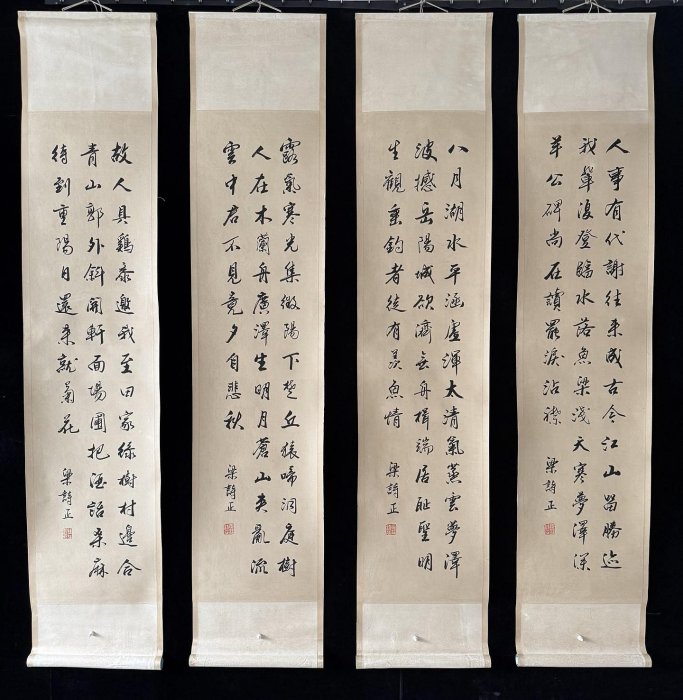 人事有代謝往来成古今江山留勝迹
我輩復登臨水落魚梁淺天寒夢澤深
羊公碑尚在讀罷淚沾襟
梁詩正
八月湖水平涵虛渾太清氣蒸雲夢澤
波撼岳陽城欲濟無舟楫端居耻聖明
坐觀垂釣者徒有羨魚情
梁詩正
露氣寒光集微陽下楚丘猿啼洞庭樹
人在木蘭舟廣澤生明月蒼山夾亂流
雲中君不見竟夕自悲秋
梁詩正
故人具鷄黍邀我至田家綠樹村邊合
青山郭外斜開軒面場圃把酒話桑麻
待到重陽日還来就菊花
梁詩正